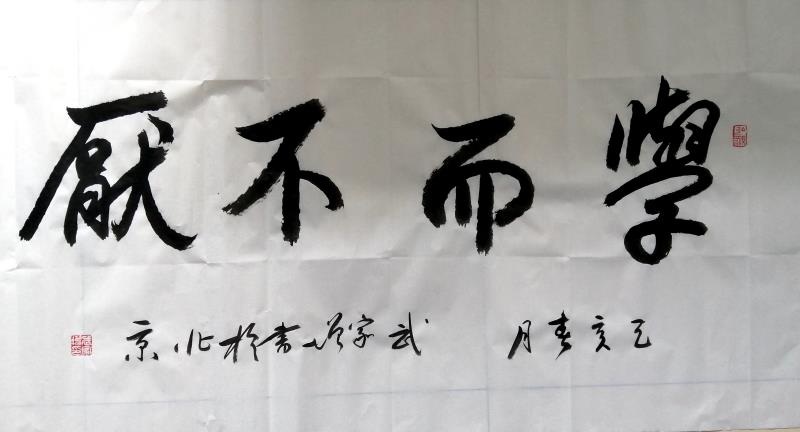 學而不厭
己亥春月 武家 書於北京